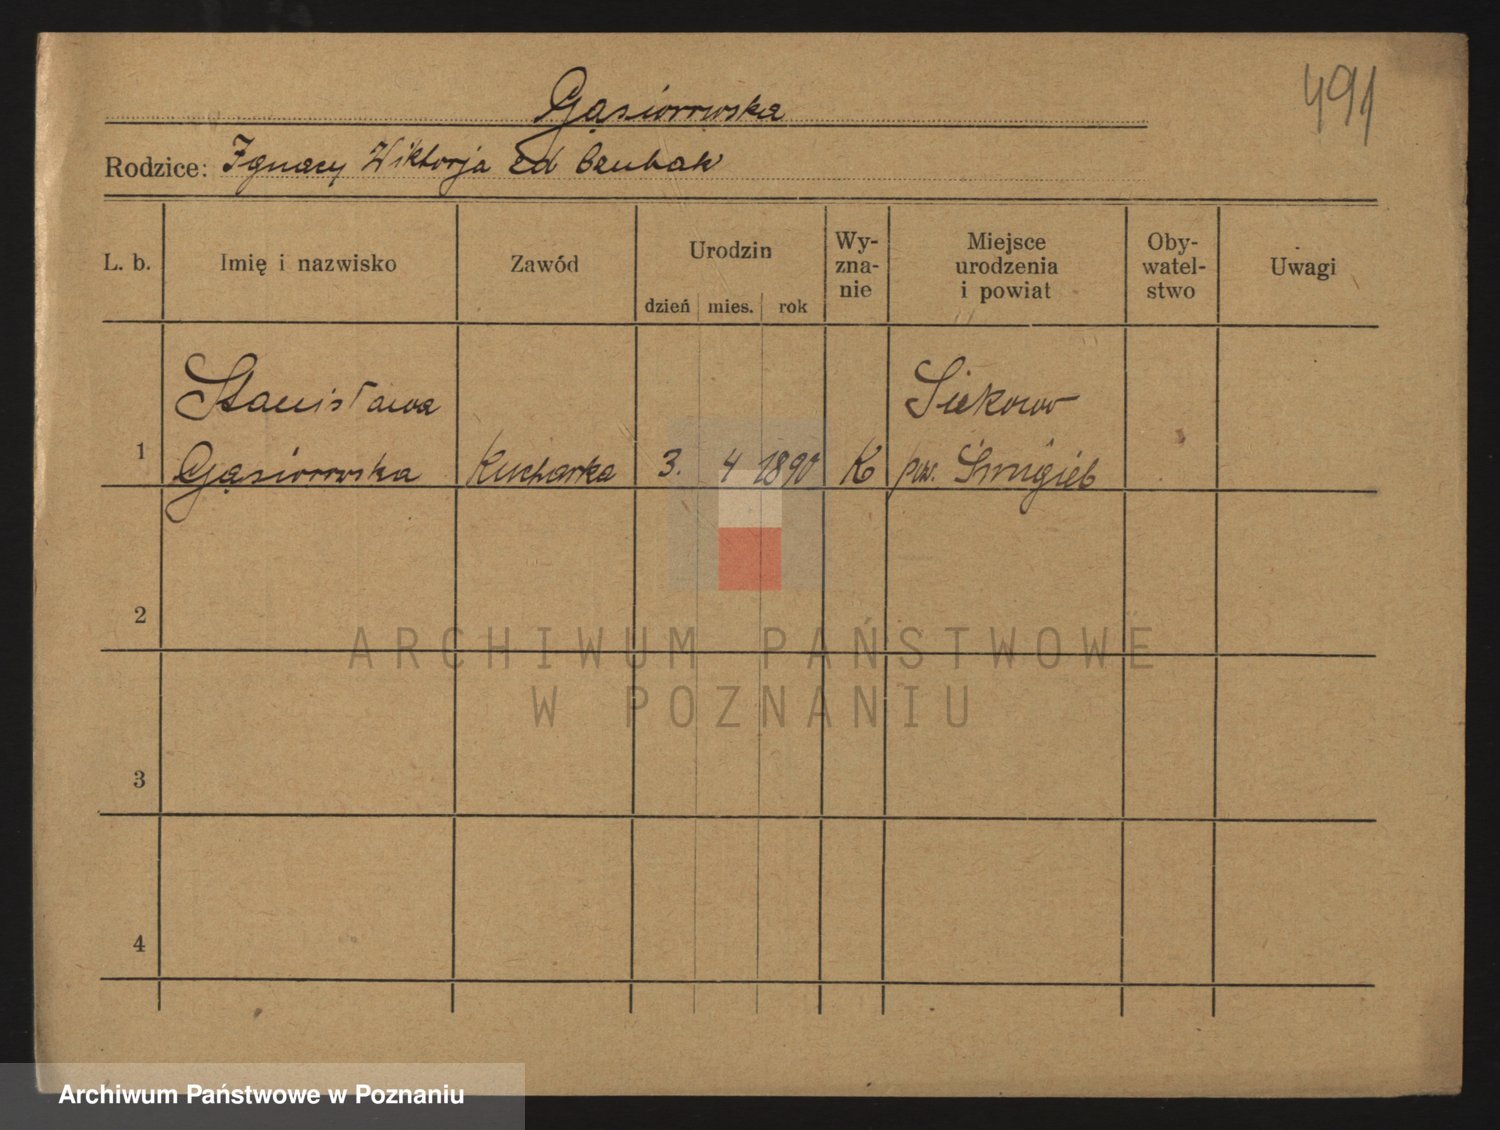 491
Gąsiorowska
Rodzice: Ignacy Wiktorja zd
L. b.
Imię i nazwisko
Zawód
Urodzin
dzień mies. rok
Wy-
zna-
nie
Miejsce
urodzenia
i powiat
Oby-
watel-
stwo
Uwagi
Stanisława Siekowo
1 Gąsiorowska Kucharka 3. 4 1890 K pow. Śmigiel
2
3
4
ARCHIWUM PAŃSTWOWE
W POZNANIU
Archiwum Państwowe w Poznaniu